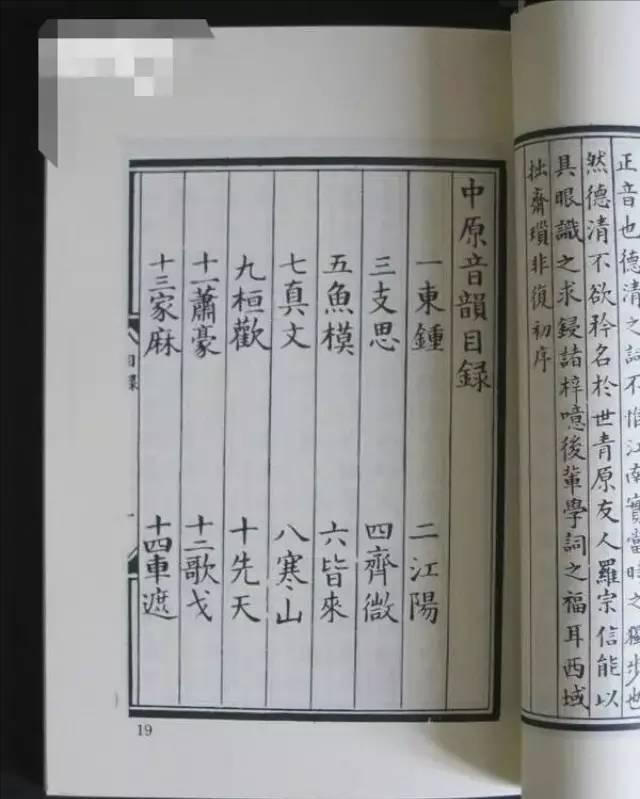 正音也德清之詞不惟江南實當時之獨步也
然德清不欲矜名於世青原友人羅宗信能以
具眼識之求鋟諸梓噫後輩學詞之福耳西域
拙齋瑣非復初序
中原音韻目録
一東鍾 二江陽
三支思 四齊微
五魚模 六皆來
七真文 八寒山
九桓歡 十先天
十一蕭豪 十二歌戈
十三家麻 十四車遮
目録
19